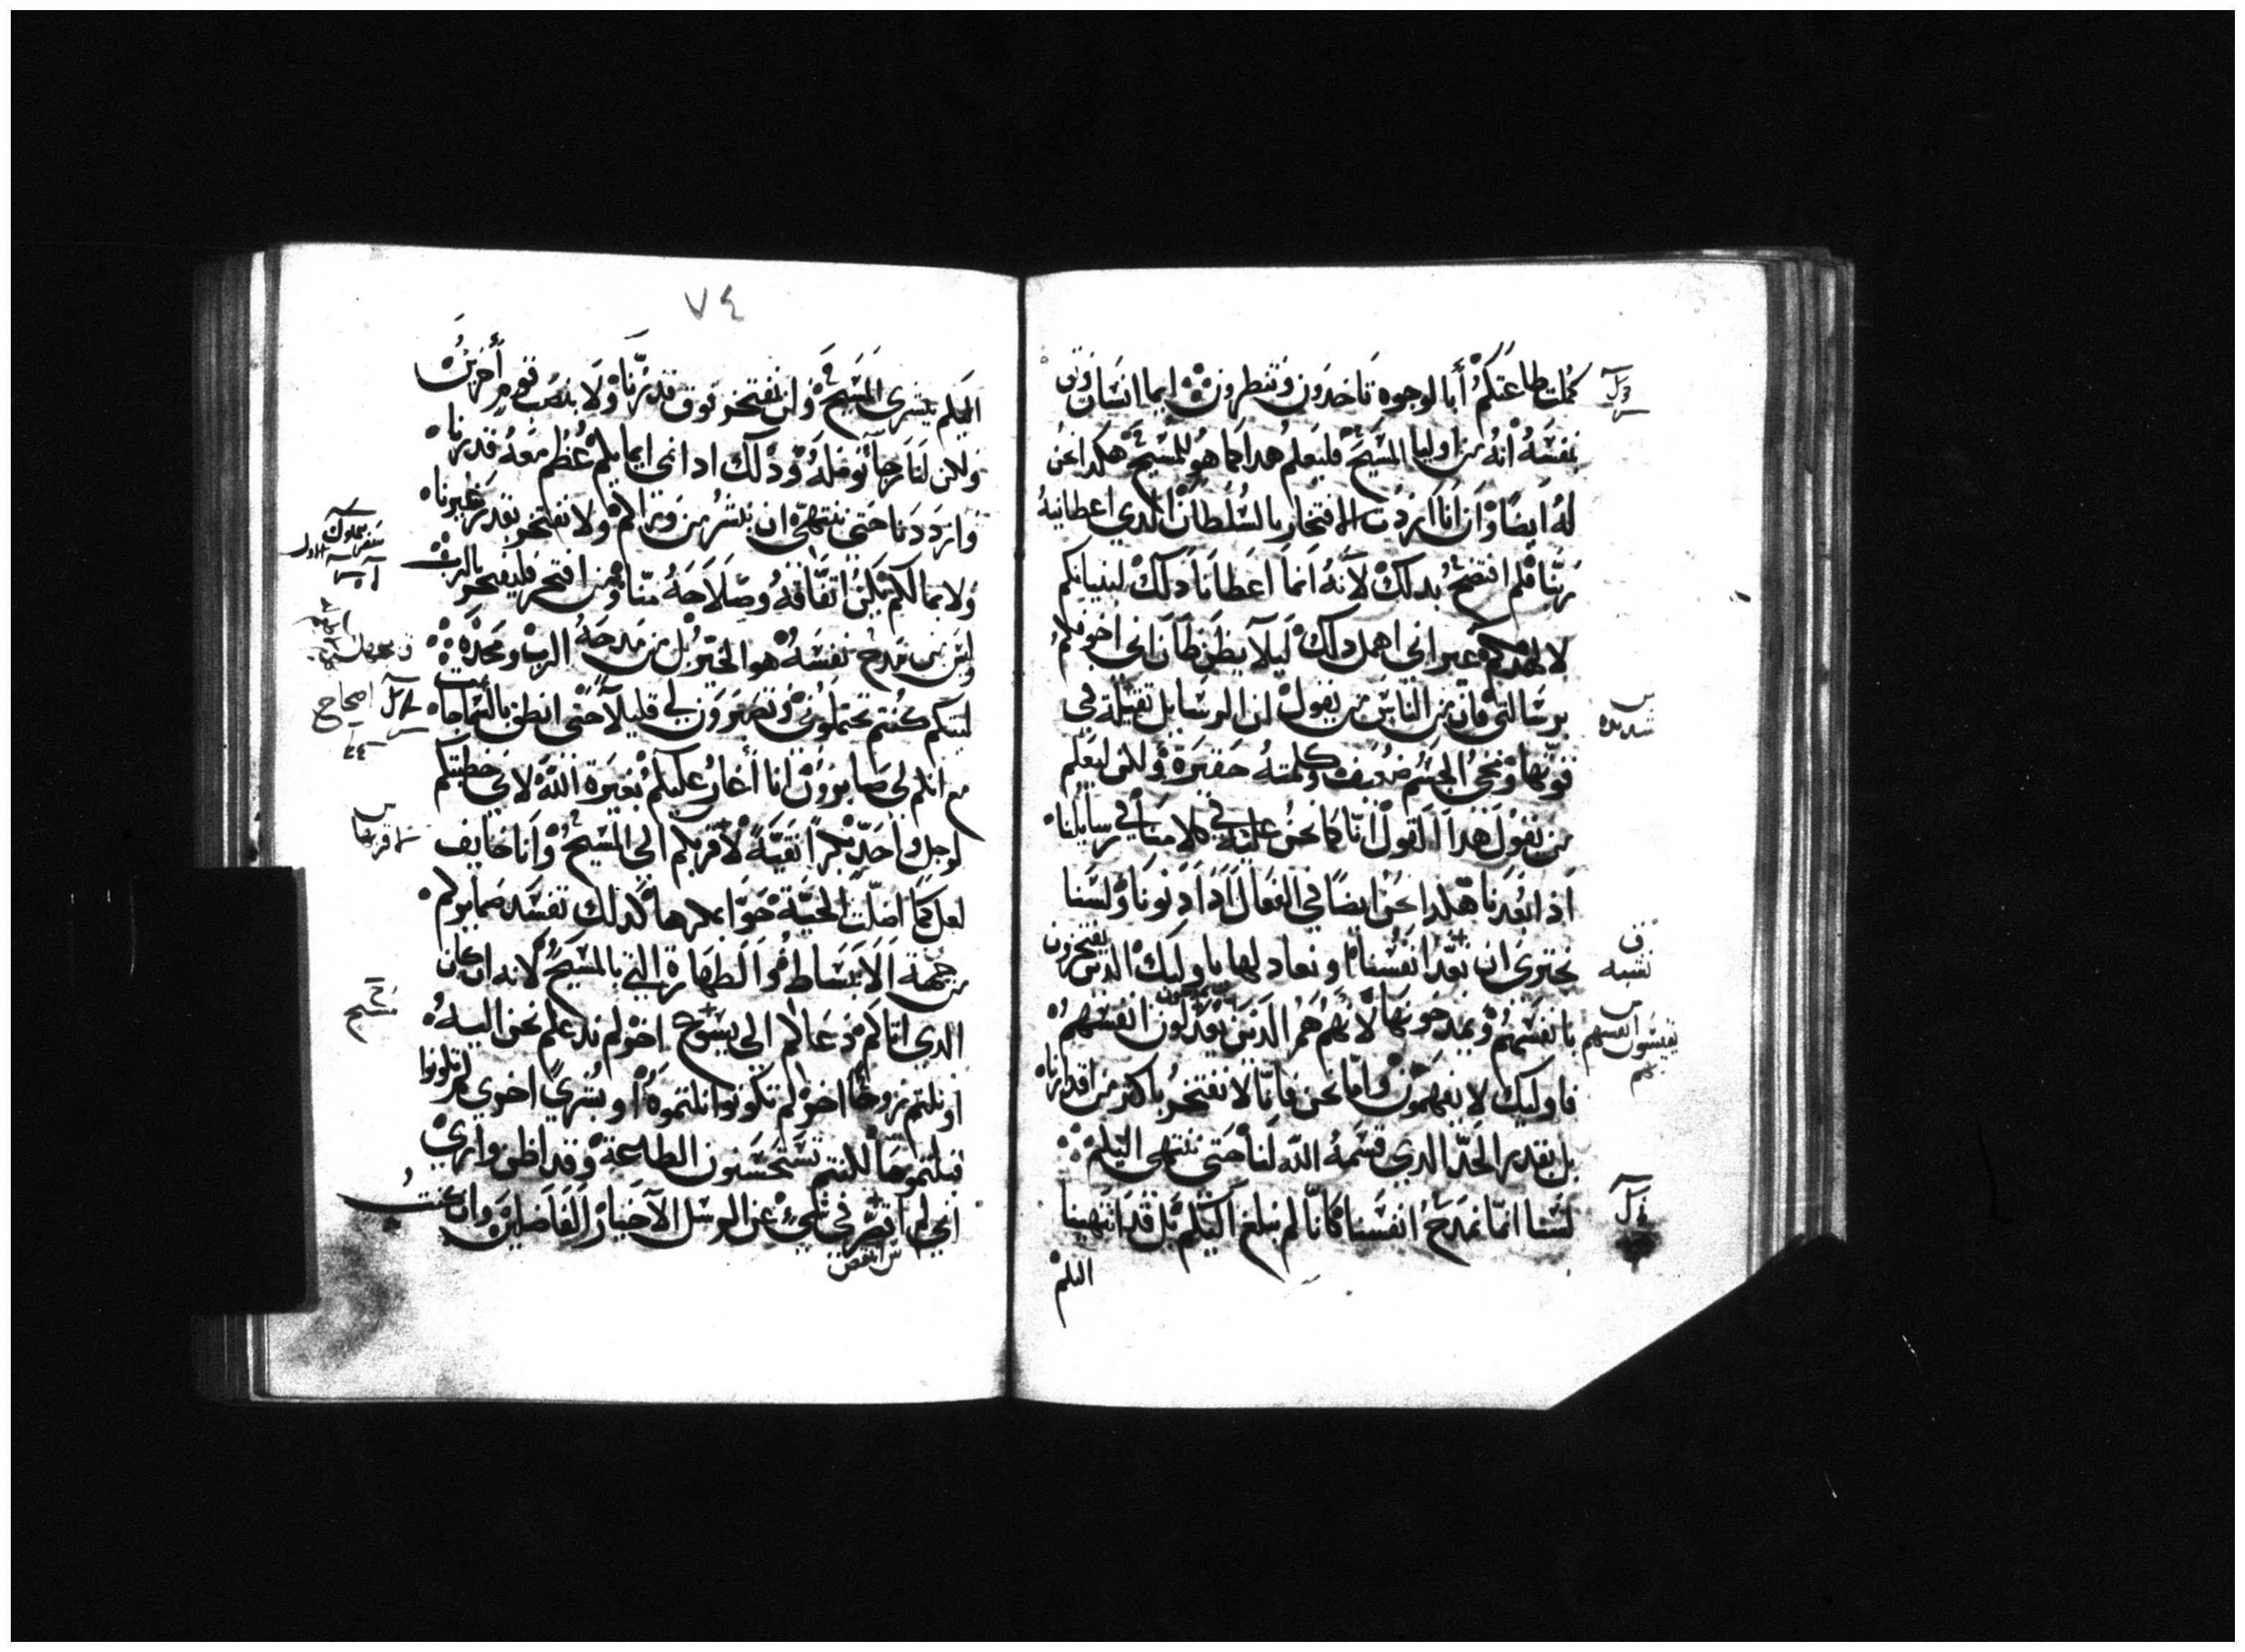 كملت طاعتكم أبالوجوه تاخدون وتنظرون ايما انسان وثق
بنفسه انه من اوليا المسيح فليعلم هدا كما هو للمسيح هكدا نحن
له ايضا وان انا اردت الافتخار بالسلطان الدي اعطانيه
ربنا فلم افتضح بدلك لانه انما اعطانا دلك لبنيانكم
لا لهدمكم غير اني اهمل دلك ليلا يظن ظان اني اخوفكم
برسالتي فان من الناس من يقول ان الرسايل تقيلة في
قوتها ومجي الجسم ضعيف وكلمته حقيرة ولكن ليعلم
من يقول هدا القول انا كما نحن عليه في كلامنا في رسايلنا
اذ ابعدنا هكدا نحن ايضا في الفعال اذا دنونا ولسنا
نجتري ان نعد انفسنا او نعادلها باوليك الدين يفتخرون
بانفسهم ويمدحونها لانهم هم الدين يعدلون انفسهم
فاوليك لا يفهمون واما نحن فانا لا نفتخر باكثر من اقدارنا
بل بقدر الحد الدي قسمه الله لنا حتى ننتهي اليكم
لسنا انما نمدح انفسنا كانا لم نبلغ اليكم بل قد انتهينا
اليكم
شديده
نشبه
يقيسون انفسهم
٧٤
اليكم ببشرى المسيح وان نفتخر فوق قدرنا ولا بنصب قوم أخرين
ولكن لنا رجا نومله ودلك اداني ايمانكم عظم معه قدرنا
وازددنا حتى ننتهي ان نبشر من ورائكم ولا نفتخر بقدر غيرنا
ولا بما لم يكن اتفاقه وصلاحه منا ومن افتخر فليفتخر بالرب
وليس من مدح نفسه هو المختبر بل من مدحه الرب ومجده
ليتكم كنتم تحتملون وتصبرون لي قليلا حتى انطق بالسماجات
مع انكم لي صابرون انا أغار عليكم بغيرة الله لاني خطبتكم
لرجل واحد بكرا نقية لاقربكم الى المسيح وانا خايف
لعل كما اضلت الحية حوا بمكرها كدلك تفسد ضمايركم
من جهة الانبساط والطهارة التي بالمسيح لانه ان كان
الدي اتاكم دعاكم الى يسوع اخر لم ندعكم نحن اليه
او نلتم روحا اخر لم تكونوا نلتموه او بشرى اخرى لم تكونوا
قبلتموها لكنتم تستحسنون الطاعة وقد اظن وارى
اني لم اقصر في شي عن الرسل الاخيار الفاضلين وان كنت
انقص
سفر ملوك
الاول
اصحاح